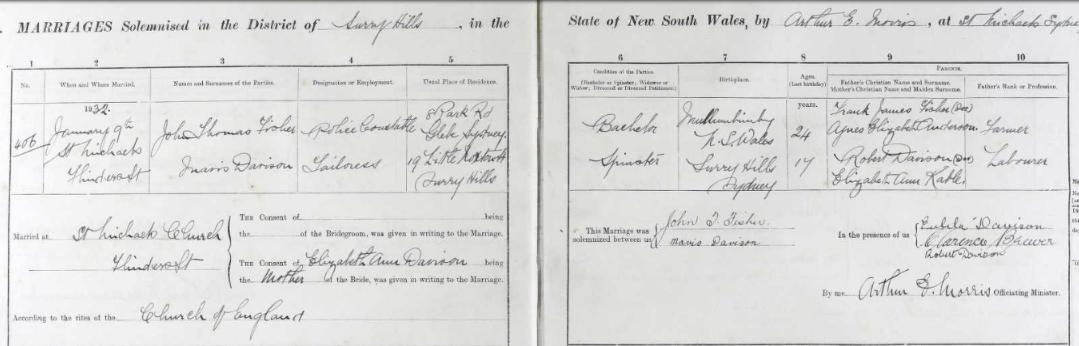 MARRIAGES Solemnised in the District of Surry Hills, in the
1 2 3 4 5
No. When and Where Married. Names and Surnames of the Parties. Designation or Employment. Usual Place of Residence.
406
1932.
January 9th
St Michaels
Flinders St
John Thomas Fisher
Mavis Davison
Police Constable
Tailoress
8 Park Rd
Glebe Sydney
19 Little
Surry Hills
Married at St Michaels Church
Flinders St
THE Consent of being
the of the Bridegroom, was given in writing to the Marriage.
THE Consent of Elizabeth Ann Davison being
the Mother of the Bride, was given in writing to the Marriage.
According to the rites of the Church of England
State of New South Wales, by Arthur E. Morris, at St Michaels Sydney
6 7 8 9 10
Condition of the Parties.
(Bachelor or Spinster; Widower or Widow; Divorced or Divorced Petitioner.)
Birthplace.
Ages.
(Last birthday)
PARENTS.
Father's Christian Name and Surname.
Mother's Christian Name and Maiden Surname.
Father's Rank or Profession.
years.
Bachelor
Spinster
Mullumbimby
N.S. Wales
Surry Hills
Sydney
24
17
Frank James Fisher (Dec)
Agnes Elizabeth Anderson
Robert Davison (Dec)
Elizabeth Ann Kable.
Farmer
Labourer
This Marriage was
solemnized between us
John T. Fisher
Mavis Davison
In the presence of us
Davison
Clarence Brewer
Robert Davison
By me Arthur E. Morris Officiating Minister.